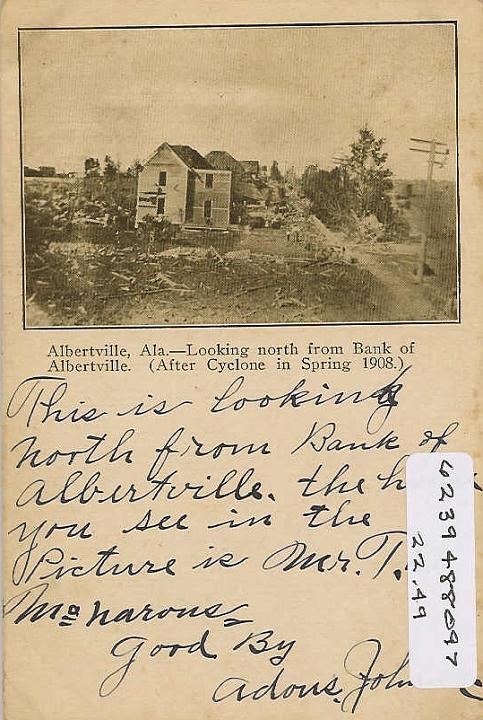 Albertville, Ala.—Looking north from Bank of
Albertville. (After Cyclone in Spring 1908.)
This is looking
north from Bank of
Albertville. the
you see in the
Picture is Mr. T.
Good By
Adous.
6239488097
22.49